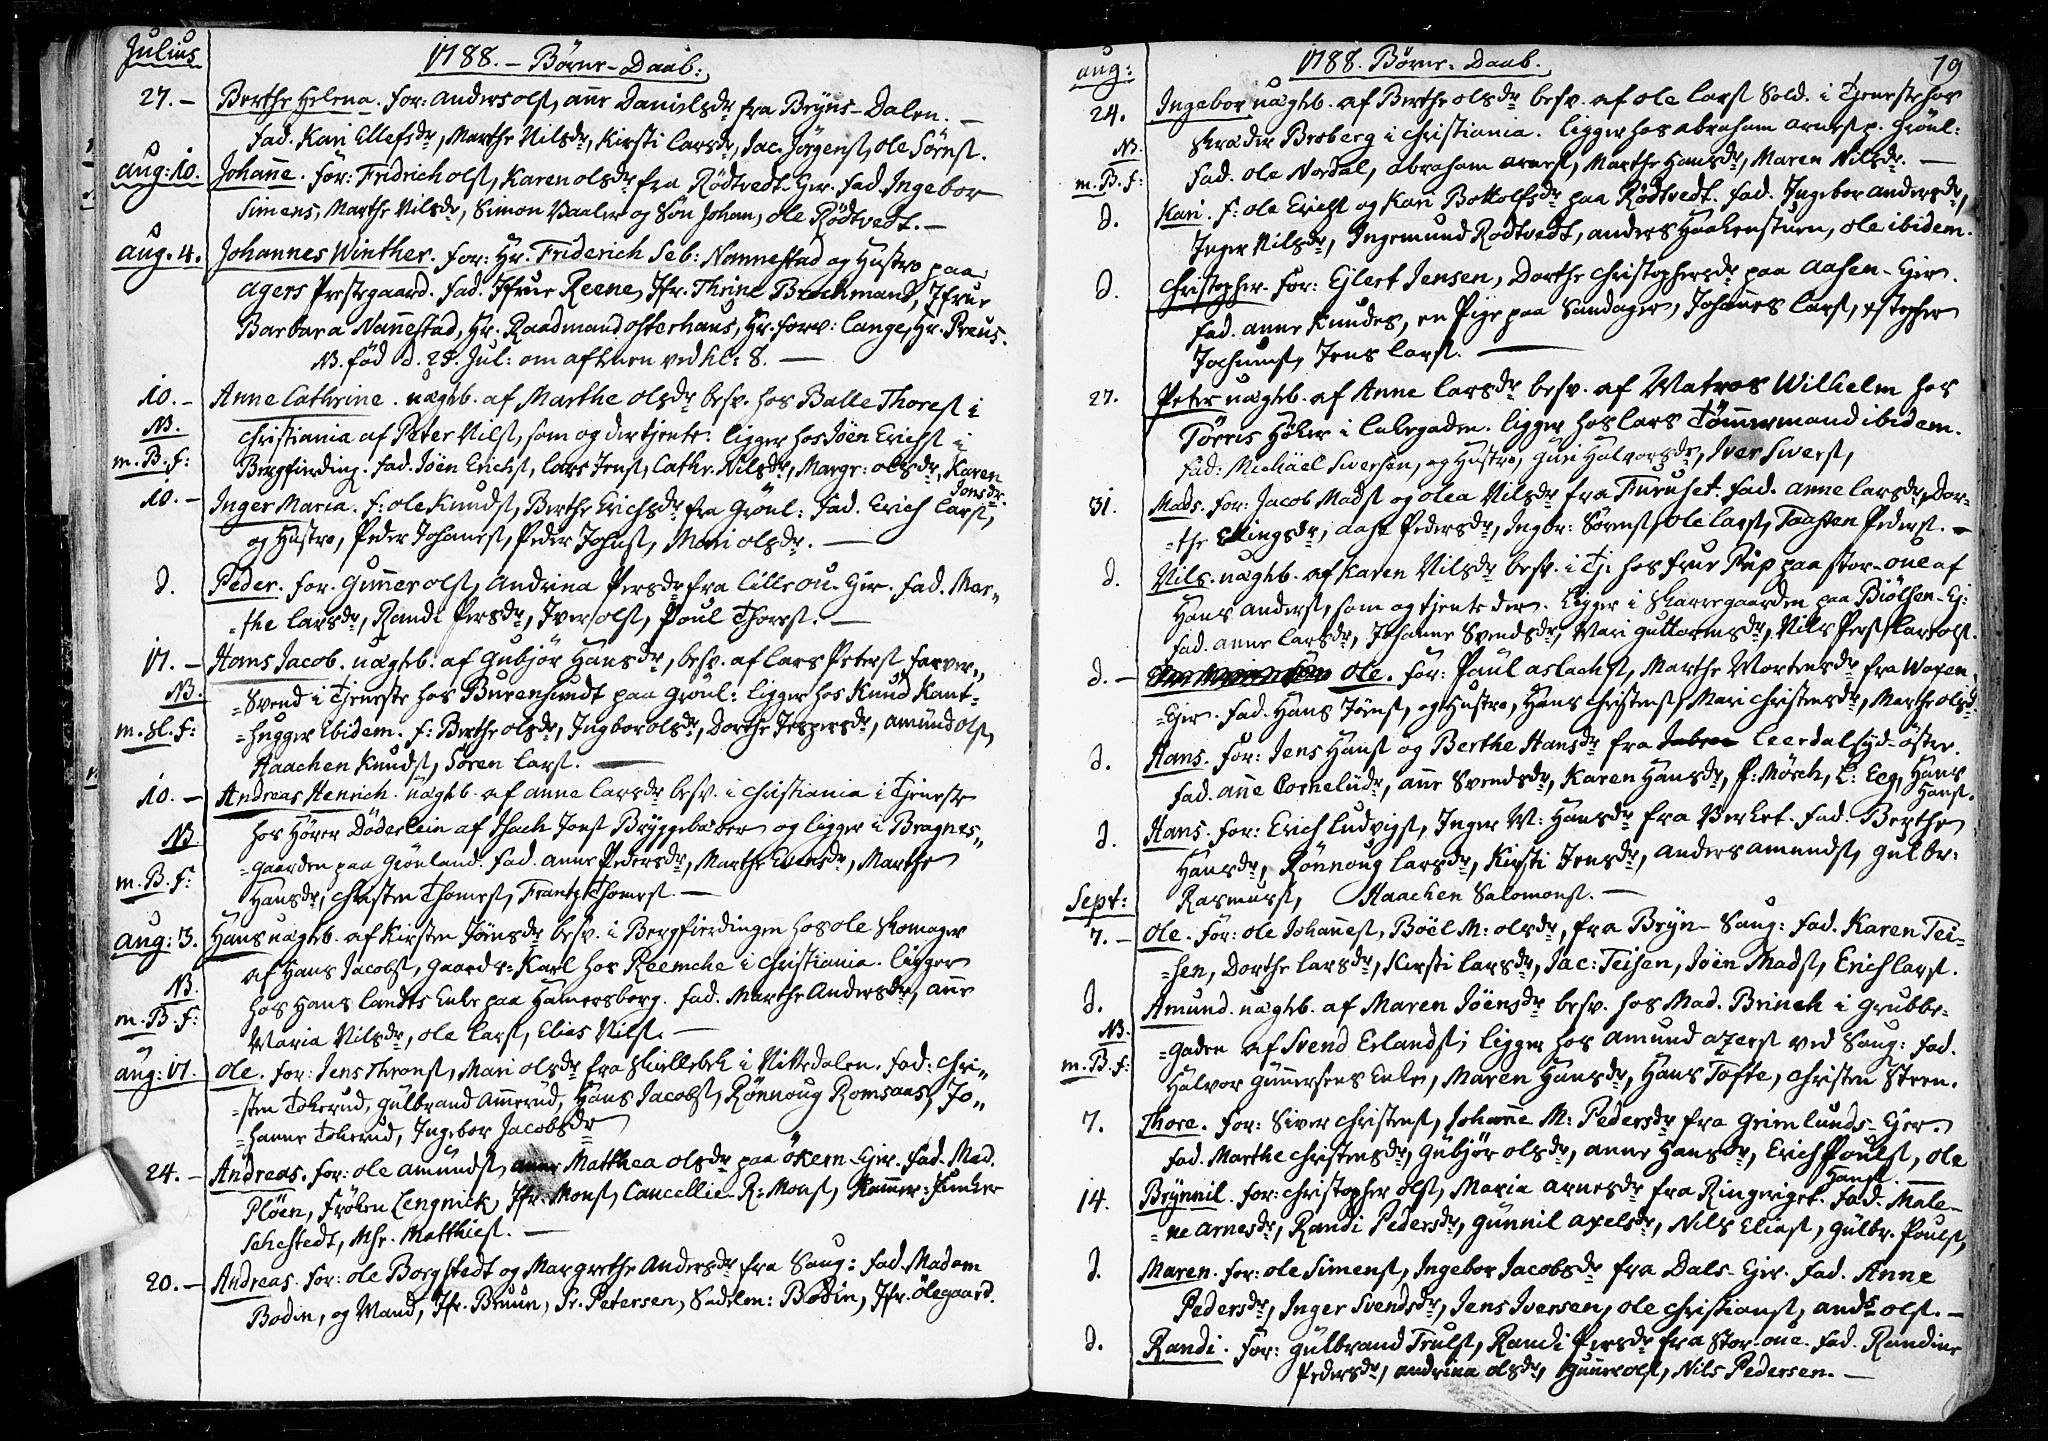 Julius
1788. – Börne-Daab:
27. – Berthe Helena. For: anders ols, ane Danielsdr fra Bryns-Dalen. –
Fad. Kari Ellefsdr, Marthe Nilsdr, Kirsti Larsdr, Jac. Jörgens, ole Sörns.
aug: 10. Johane. For: Fridrich ols, Karen olsdr fra Rödtvedt-Ejer. Fad. Ingebor
Simens, Marthe Nilsdr, Simon Vaaler og Sön Johan, ole Rödtvedt. –
aug. 4. Johannes Winther. For: Hr. Friderich Seb: Nannestad og Hustro paa
agers Prestegaard. Fad. Fru Reene, Jfr. Thrine Brochmand, Jfrue
Barbara Nanestad, Hr. Raadmand osterhaus, Hr. Forv: Lange, Hr. Preus.
NB. föd d. 28. Jul: om aftenen ved Kl: 8. –
10. – Anne Cathrine. uægtb. af Marthe olsdr besv. hos Balle Thores i
NB. Christiania af Peter Nils, som og der tjente. ligger hos Jöen Erichs i
m. B. f: Bergfierding. Fad. Jöen Erichs, Lars Jens, Cathr. Nilsdr, Margr: olsdr, Karen
Jonsdr.
10. – Inger Maria. F: ole Knuds, Berthe Erichsdr fra Grönl: Fad. Erich Lars,
og Hustro, Peder Johanes, Peder Johns, Mari olsdr. –
d. Peder. For. Guner ols, Andrina Persdr fra Lille ou-Ejer. Fad. Mar-
-the Larsdr, Randi Persdr, Iver ols, Poul Thores. –
17. – Hans Jacob. uægtb. af Gubjör Hansdr, besv. af Lars Peters Farver-
NB. -Svend i Tjeneste hos Burenhindt paa Grönl: ligger hos Knud Kant-
m. Sl. f: -hugger ibidem. F: Berthe olsdr, Ingbor olsdr, Dorthe Jespersdr, Amund ols,
Haachen Knuds, Sören Lars. –
10. – Andreas Henrich. uægtb. af Anne Larsdr besv. i Christiania i Tjeneste
NB hos Hörer Döderlein af Isach Jons Bryggebærer og ligger i Bragnes-
m. B. f: -gaarden paa Grönland. Fad. Anne Pedersdr, Marthe Evensdr, Marthe
Hansdr, Christen Thomes, Frantz Thomes. –
aug: 3. Hans uægtb. af Kirsten Jörnsdr besv. i Bergfierdingen hos ole Skomager
NB. af Hans Jacobs, Gaards-Karl hos Reemche i Christiania. ligger
m. B. f: hos Hans Landts Enke paa Hamersborg. Fad. Marthe Andersdr, Ane
Maria Nilsdr, ole Lars, Elias Nils. –
aug: 17. ole. For: Jens Throns, Mari olsdr fra Skillebek i Nittedalen. Fad: Chri-
-sten Tokerud, Gulbrand Amerud, Hans Jacobs, Rönnoug Romsaas, Jo-
-hanne Tokerud, Ingebor Jacobsdr
24. – Andreas. For: ole Amunds, Matthea olsdr paa ökern-Ejer. Fad. Mad.
Plöen, Fröken Lengnick, Jfr. Mons, Cancellie R: Mons, Kammer-Junker
Sehestedt, Mhr. Matthies. –
20. – Andreas. For: ole Borgstedt og Margrethe Andersdr fra Saug: Fad. Madam
Bodin, og Mand, Jfr. Bruun, Sr. Petersen, Sadelm: Bodin, Jfr. ölegaard.
aug:
1788. Börne-Daab. 19
24. Ingebor uægtb. af Berthe olsdr besv. af ole Lars Sold. i Tjeneste hos
NB. Skræder Broberg i Christiania. Ligger hos Abraham Arnes p. Grönl:
m. B. f: Fad. ole Nordal, Abraham Arnes, Marthe Hansdr, Maren Nilsdr. –
d. Kari. F: ole Erichs og Kari Bottolfsdr paa Rödtvedt. Fad. Ingebor Andersdr,
Inger Nilsdr, Ingemund Rödtvedt, Anders Haakenstuen, ole ibidem.
d. Christopher. For: Ejlert Jensen, Dorthe Christophersdr paa Aasen-Ejer.
Fad. Anne Knudes, en Pige paa Sandager, Johanes Lars, Xstopher
Jochums, Jens Lars. –
27. Peter uægtb. af Anne Larsdr besv. af Matros Wilhelm hos
Törris Höker i Labegaden. ligger hos Lars Tömermand ibidem.
Fad: Michäel Siversen, og Hustro, Guri Halvorsdr, Iver Sivers,
31. Mads. For: Jacob Mads og olea Nilsdr fra Furuset. Fad. Anne Larsdr, Dor-
-the Ellingsdr, Aase Pedersdr, Ingbr: Sörens, ole Lars, Taasten Peders. –
d. Nils. uægtb. af Karen Nilsdr besv. i Tj: hos Frue Pup paa Stor-oue af
Hans Anders, som og tjente der. Ligger i Skarregaarden paa Biölsen-Ej:
Fad. Anne Larsdr, Johanne Svendsdr, Mari Guttormsdr, Nils Pers, Lars ols.
d. – ole. For: Paul Aslachs, Marthe Mortensdr fra Woxen-
-Ejer. Fad. Hans Jöns, og Hustro, Hans Christens, Mari Christensdr, Marthe olsdr.
d. Hans. For: Jens Hans og Berthe Hansdr fra Leerdalsyd-östre.
Fad. Ane Corneliidr, Ane Svendsdr, Karen Hansdr, P: Mörch, L: Eeg, Hans
Hans.
d. Hans. For: Erich Ludvigs, Inger M: Hansdr fra Verket. Fad. Berthe
Hansdr, Rönnoug Larsdr, Kirsti Jensdr, Anders Amunds, Gulbr:
Rasmus, Haachen Salomons. –
Sept:
7. – ole. For: ole Johanes, Böel M: olsdr, fra Bryn-Saug: Fad. Karen Tei-
-sen, Dorthe Larsdr, Kirsti Larsdr, Jac: Teisen, Jöen Mads, Erich Lars.
d. Amund. uægtb. af Maren Jöensdr besv. hos Mad. Brinch i Grubbe-
NB. -gaden af Svend Erlands; ligger hos Amund Azers ved Saug: Fad.
m. B. f: Halvor Gunersens Enke, Maren Hansdr, Hans Tofte, Christen Steen.
7. Thore. For: Siver Christens, Johanne M: Pedersdr fra Grimlunds-Ejer.
Fad. Marthe Christensdr, Gubjör olsdr, Anne Hansdr, Erich Pouls, ole
Hans.
14. Brynnil. For: Christopher ols, Maria Arnesdr fra Ringeriget. Fad. Male-
-ne Arnesdr, Randi Pedersdr, Gunnil Axelsdr, Nils Elias, Gulbr. Pouls,
d. Maren. For: ole Simens, Ingebor Jacobsdr fra Dals-Ejer. Fad. Anne
Pedersdr, Inger Svendsdr, Jens Iversen, ole Christians, Ands ols. –
d. Randi. For: Gulbrand Truls, Randi Persdr fra Stor-oue. Fad. Randine
Pedersdr, Andrina olsdr, Guner ols, Nils Pedersen. –